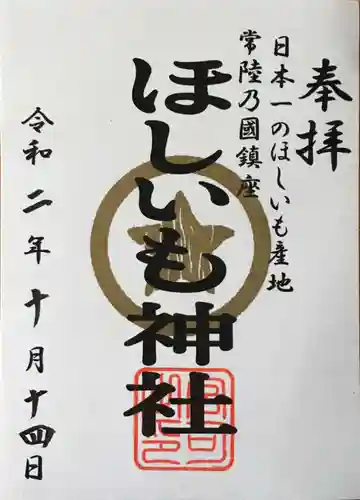 奉拝
日本一のほしいも産地
常陸乃國鎮座
ほしいも神社
令和二年十月十四日